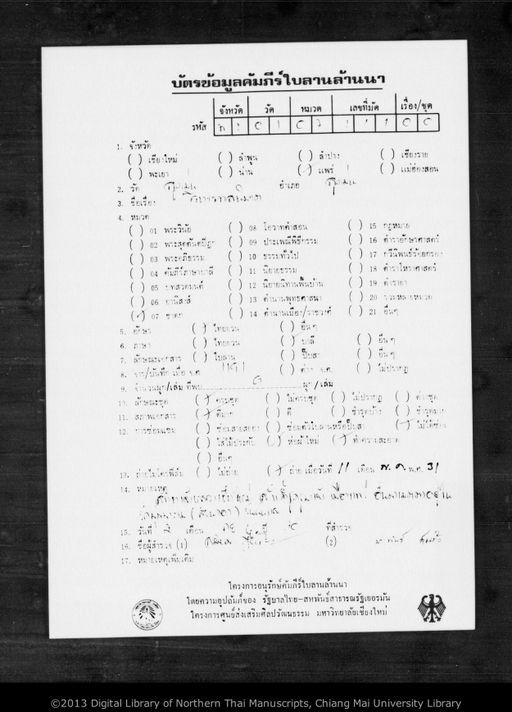 บัตรข้อมูลคัมภีร์ใบลานล้านนา
จังหวัด วัด หมวด เลขที่มัด เรื่อง/ชุด
รหัส 0 1 0 7 1 1 1 0 0
1. จังหวัด
( ) เชียงใหม่ ( ) ลำพูน ( ) ลำปาง ( ) เชียงราย
( ) พะเยา ( ) น่าน (/) แพร่ ( ) แม่ฮ่องสอน
2. วัด อำเภอ
3. ชื่อเรื่อง
4. หมวด
( ) 01 พระวินัย ( ) 08 โอวาทคำสอน ( ) 15 กฎหมาย
( ) 02 พระสุตตันตปิฎก ( ) 09 ประเพณีพิธีกรรม ( ) 16 ตำราอักษรศาสตร์
( ) 03 พระอภิธรรม ( ) 10 ธรรมทั่วไป ( ) 17 กวีนิพนธ์ร้อยกรอง
( ) 04 คัมภีร์ภาษาบาลี ( ) 11 นิยายธรรม ( ) 18 ตำราโหราศาสตร์
( ) 05 บทสวดมนต์ ( ) 12 นิยายนิทานพื้นบ้าน ( ) 19 ตำรายา
( ) 06 อานิสงส์ ( ) 13 ตำนานพุทธศาสนา ( ) 20 รวมหลายหมวด
(/) 07 ชาดก ( ) 14 ตำนานเมือง/ราชวงศ์ ( ) 21 อื่นๆ
5. อักษร (/) ไทยยวน ( ) อื่นๆ
6. ภาษา ( ) ไทยยวน ( ) บาลี ( ) อื่นๆ
7. ลักษณะเอกสาร ( ) ใบลาน ( ) ปั๊บสา ( ) อื่นๆ
8. จาร/บันทึก เมื่อ จ.ศ. 1191 ( ) ( ) ไม่ปรากฏ
9. จำนวนผูก/เล่ม ที่พบ ผูก/เล่ม
10. ลักษณะชุด (/) ครบชุด ( ) ไม่ครบชุด ( ) ไม่ปรากฏ ( )
11. สภาพเอกสาร (/) ดีมาก ( ) ดี ( ) ชำรุดบ้าง ( ) ชำรุดมาก
12. การซ่อมแซม ( ) ซ่อมสายสยอง ( ) ซ่อมตัวใบลานหรือปั๊บสา (/) ไม่ได้ซ่อม
( ) ใส่ไม้ประกับ ( ) ห่อผ้าใหม่ (/) ทำความสะอาด
( ) อื่นๆ
13. ถ่ายไมโครฟิล์ม ( ) ไม่ถ่าย (/) ถ่าย เมื่อวันที่ 11 เดือน พ.ค. พ.ศ. 31
14. หมายเหตุ
15. วันที่ เดือน ที่สำรวจ
16. ชื่อผู้สำรวจ (1) (2)
17. หมายเหตุเพิ่มเติม
โครงการอนุรักษ์คัมภีร์ใบลานล้านนา
โดยความอุปถัมภ์ของ รัฐบาลไทย-สหพันธ์สาธารณรัฐเยอรมัน
โครงการศูนย์ส่งเสริมศิลปวัฒนธรรม มหาวิทยาลัยเชียงใหม่
©2013 Digital Library of Northern Thai Manuscripts, Chiang Mai University Library